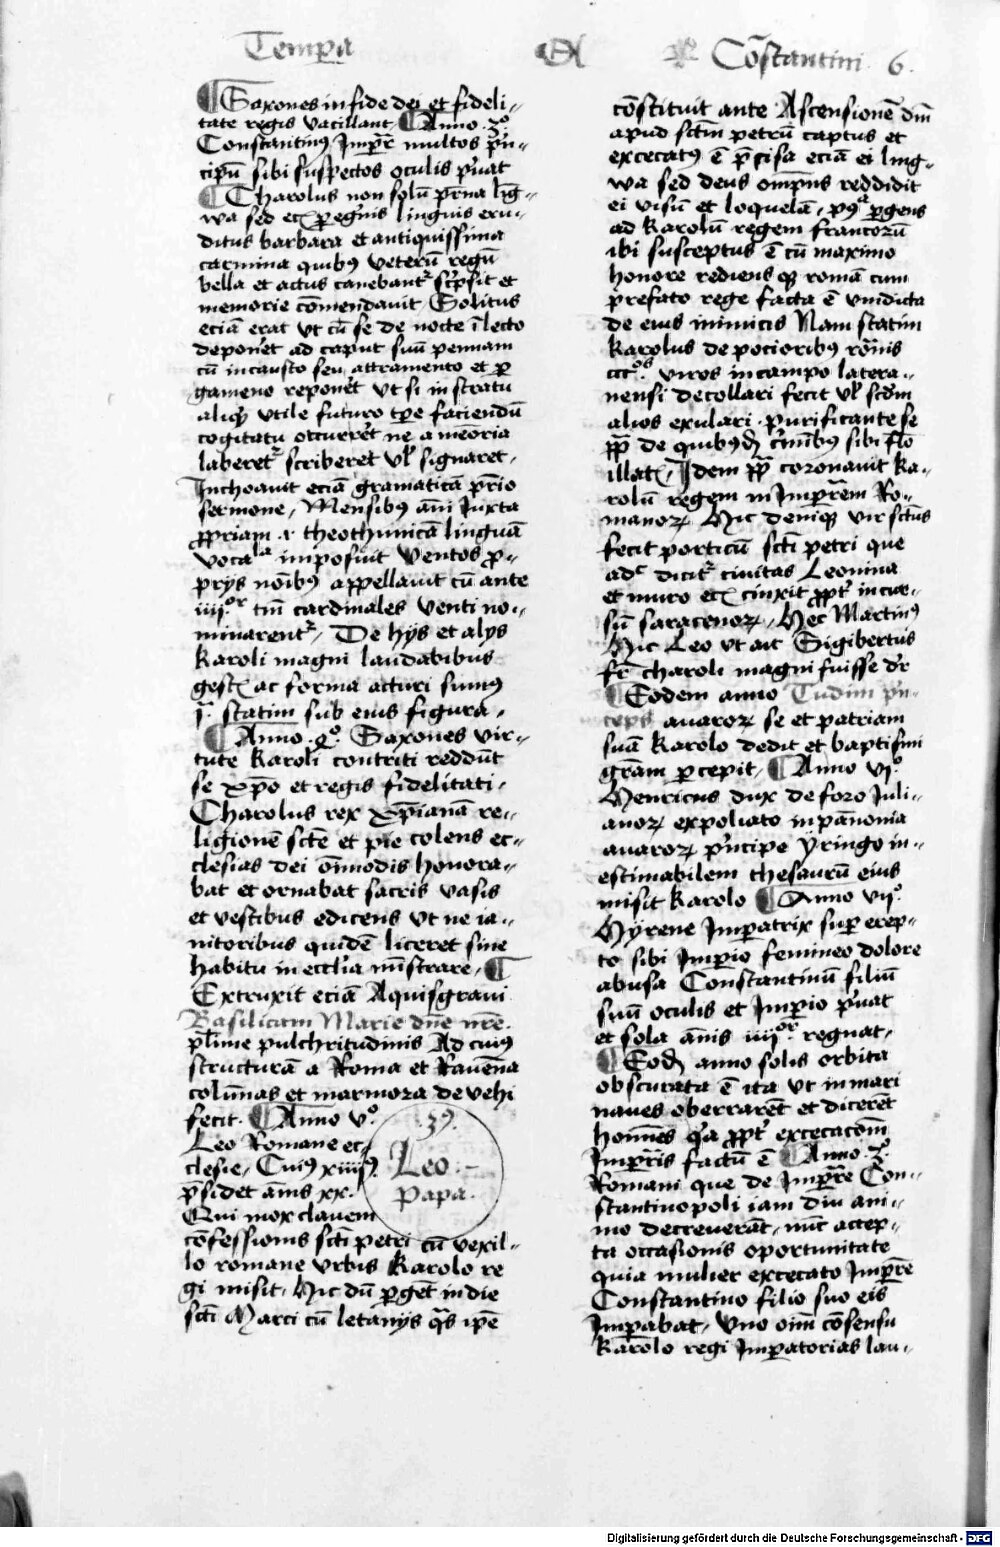 Tempa
Constantini 6.
¶ Saxones in fide dei et fideli-
tate regis vacillant. ¶ Anno .3º.
Constantinꝰ Imꝑr̄ multos pͥn-
cipū sibi suspectos oculis pͥuat
¶ Charolus non solū pr̄ina lig̅-
wa sed etꝫ ꝑegͥnis linguis eru-
ditus barbara et antiquissima
carmina quibꝰ veterū regū
bella et actus canebantᷣ scͥpsit et
memorie cōmendauit Solitus
eciā erat vt cū se de nocte ī lecto
deponet̄ ad caput suū pennam
cū incausto seu attramento et ꝑ
gameno reponet̄ vt si in stratu
aliqͥd vtile futuro tꝑe faciendū
cogitatu occurret̄ ne a mēoria
laberetᷣ scriberet vl̄ signaret.
Inchoauit eciā gramatica pͥrio
sermone. Mensibꝰ āni iuxta
ꝓpriam .i. theothunicā linguā
vocabla imposuit Ventos ꝓ-
prijs nōibꝰ appellauit cū ante
iiii.ᵒʳ tm̄ cardinales venti no-
minarentᷣ. De hijs et alijs
Karoli magni laudabibus
gestꝫ ac forma acturi sumꝰ
ī. statim sub eius figura.
¶ Anno .4º. Saxones vir-
tute Karoli contriti reddūt
se xp̄o et regis fidelitati.
Charolus rex xp̄ianā re-
ligionē sctē et pie colens ec-
clesias dei om̄imodis honora-
bat et ornabat sacris vasis
et vestibus edicens vt ne ia-
nitoribus quidē liceret sine
habitu in eccl̄ia mistrare. ¶
Extruxit eciā Aquisgrani
Basilicam Marie dn̄e nr̄e.
pl̄ime pulchritudinis Ad cuiꝰ
structurā a Roma et Rauēna
colūnas et marmora de vehi
fecit. ¶ Anno vº.
Leo Romane ec-
clesie. Cuiꝰ xiiijꝰ.
p̄sidet ānis xx.
Qui mox clauem
cōfessionis scti petri cū vexil-
lo romane vrbis Karolo re
gi misit. Hic dū ꝑget̄ in die
scti Marci cū letanijs qͣs ip̄e
.39.
Leo
Papa.
cōstituit ante Ascensionē dn̄i
apud sctm̄ petrū captus et
excecatꝰ ē p̄cisa eciā ei ling-
wa sed deus om̄pn̄s reddidit
ei visū et loquelā. pꝰᵃ ꝑgens
ad Karolū regem francorū
ibi susceptus ē cū maximo
honore rediens qꝫ romā cum
prefato rege facta ē vindicta
de eius inimicis Nam statim
Karolus de pocioribꝰ rōnis
cccᵒˢ. viros in campo latera-
nensi decollari fecit vl̄ scdm̄
alios exulari. purificante se
pp̄ de quibꝰdā cͥminibꝰ sibi flo
illatꝫ. Idem pp̄ coronauit Ka-
rolū regem in Imꝑr̄em Ro-
manoꝝ Hic deniqꝫ vir sctūs
fecit porticū scti petri que
adᶜ dicitᷣ ciuitas Leonina
et muro etꝫ cinxit ꝓptᷣ incur-
sū saracenoꝝ. Hec Martinꝰ
Hic Leo vt ait Sigibertus
fr̄ charoli magni fuisse dr̄
¶ Eodem anno Tudim pͥn-
ceps auaroꝝ se et patriam
suā Karolo dedit et baptismi
gr̄am ꝑcepit. ¶ Anno vjº.
Henricus dux de foro Iuli-
anoꝝ expoliato in pānonia
auaroꝝ pͥncipe Yringo in-
estimabilem thesaurū eius
misit Karolo ¶ Anno vijº.
Hyrene Imꝑatrix suꝑ erep-
to sibi Imꝑio femineo dolore
abusa Constantinū filiū
suū oculis et Imꝑio pͥuat
et sola ānis iiiiᵒʳ regnat.
¶ Eodē anno solis orbita
obscurata ē ita vt in mari
naues oberraret̄ et diceret̄
hoīnes qͥa ꝓptᷣ excecacōm
Imꝑr̄is factū ē ¶ Anno .8º.
Romani que de Imꝑr̄e Con-
stantinopoli iam diu ani-
mo decreuerāt. nūc accep-
ta occasionis oportunitate
quia mulier excecato Imꝑr̄e
Constantino filio suo eis
Imꝑabat. vno oim̄ cōsensu
Karolo regi Imꝑatorias lau-
Digitalisierung gefördert durch die Deutsche Forschungsgemeinschaft - DFG